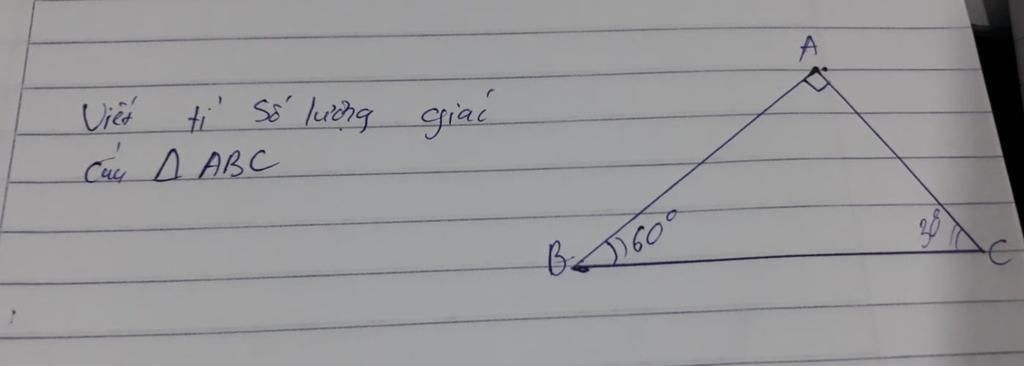 Viết tỉ số lượng giác
của Δ ABC
A
B
60°
30°
C